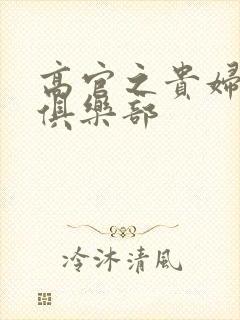 高官之貴婦
俱樂部
冷沐清風